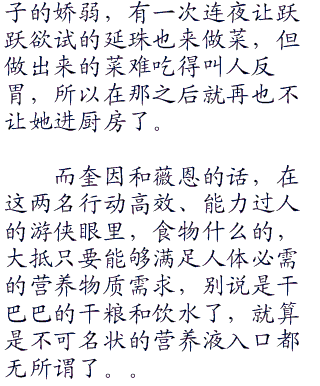 子的娇弱，有一次连夜让跃
跃欲试的延珠也来做菜，但
做出来的菜难吃得叫人反
胃，所以在那之后就再也不
让她进厨房了。
而奎因和薇恩的话，在
这两名行动高效、能力过人
的游侠眼里，食物什么的，
大抵只要能够满足人体必需
的营养物质需求，别说是干
巴巴的干粮和饮水了，就算
是不可名状的营养液入口都
无所谓了。。